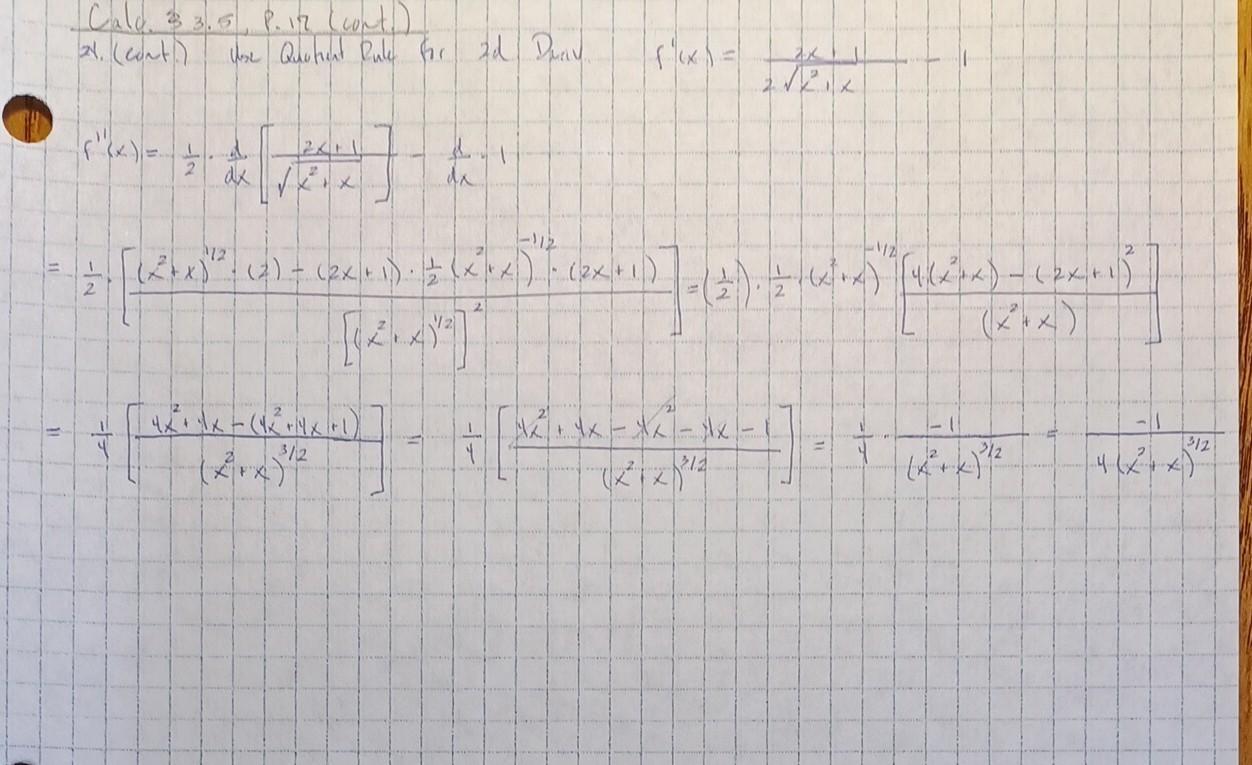 Calc. § 3.5, P. 17 (cont.)
21. (cont.) Use Quotient Rule for 2d Deriv. f'(x) = (2x + 1)/(2√(x² + x)) - 1
f''(x) = 1/2 · d/dx [(2x + 1)/√(x² + x)] - d/dx · 1
= 1/2 · [((x² + x)^1/2 · (2) - (2x + 1) · 1/2 (x² + x)^-1/2 · (2x + 1))/[(x² + x)^1/2]²] = (1/2) · 1/2 · (x² + x)^-1/2 [(4(x² + x) - (2x + 1)²)/(x² + x)]
= 1/4 [(4x² + 4x - (4x² + 4x + 1))/(x² + x)^3/2] = 1/4 [(4x² + 4x - 4x² - 4x - 1)/(x² + x)^3/2] = 1/4 · -1/(x² + x)^3/2 = -1/(4(x² + x)^3/2)